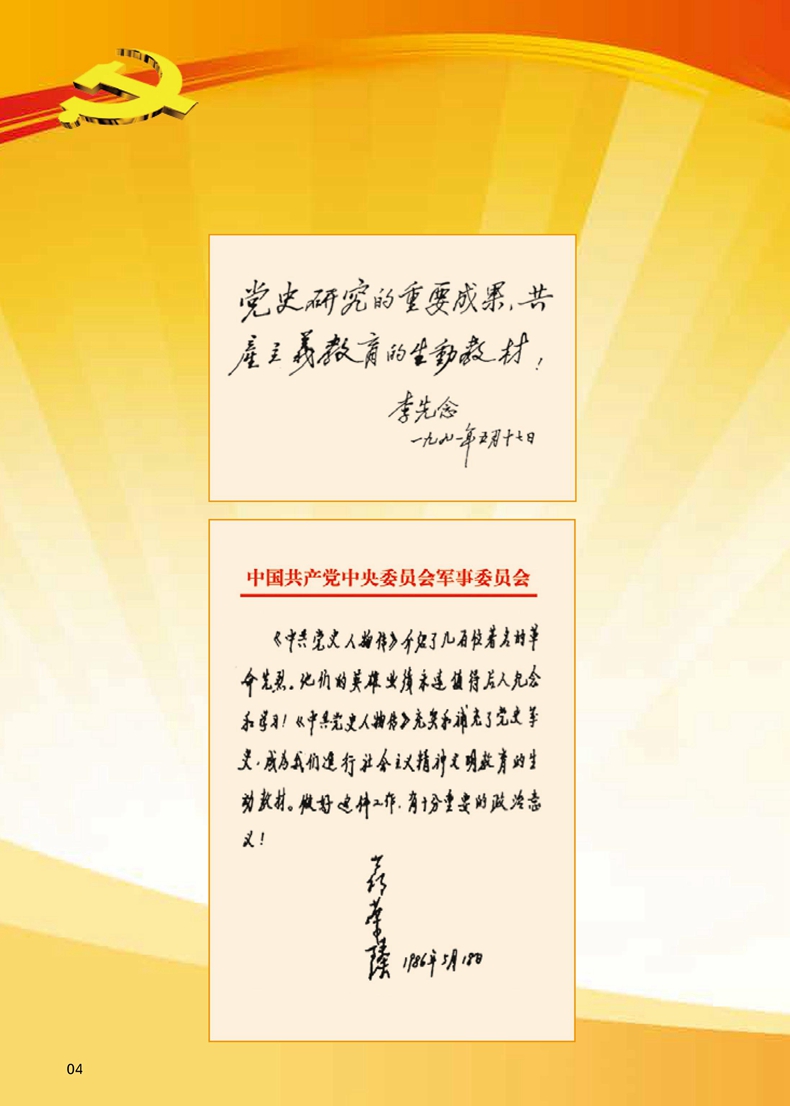 党史研究的重要成果、共
產主義教育的生動教材！
李先念
一九九一年五月十七日
中国共产党中央委员会军事委员会
《中共党史人物传》介绍了几百位著名的革
命先烈。他们的英雄业绩永远值得后人纪念
和学习！《中共党史人物传》充实和补充了党史、军
史，成为我们进行社会主义精神文明教育的生
动教材。做好这件工作，有十分重要的政治意
义！
聂荣臻
1986年5月18日
04